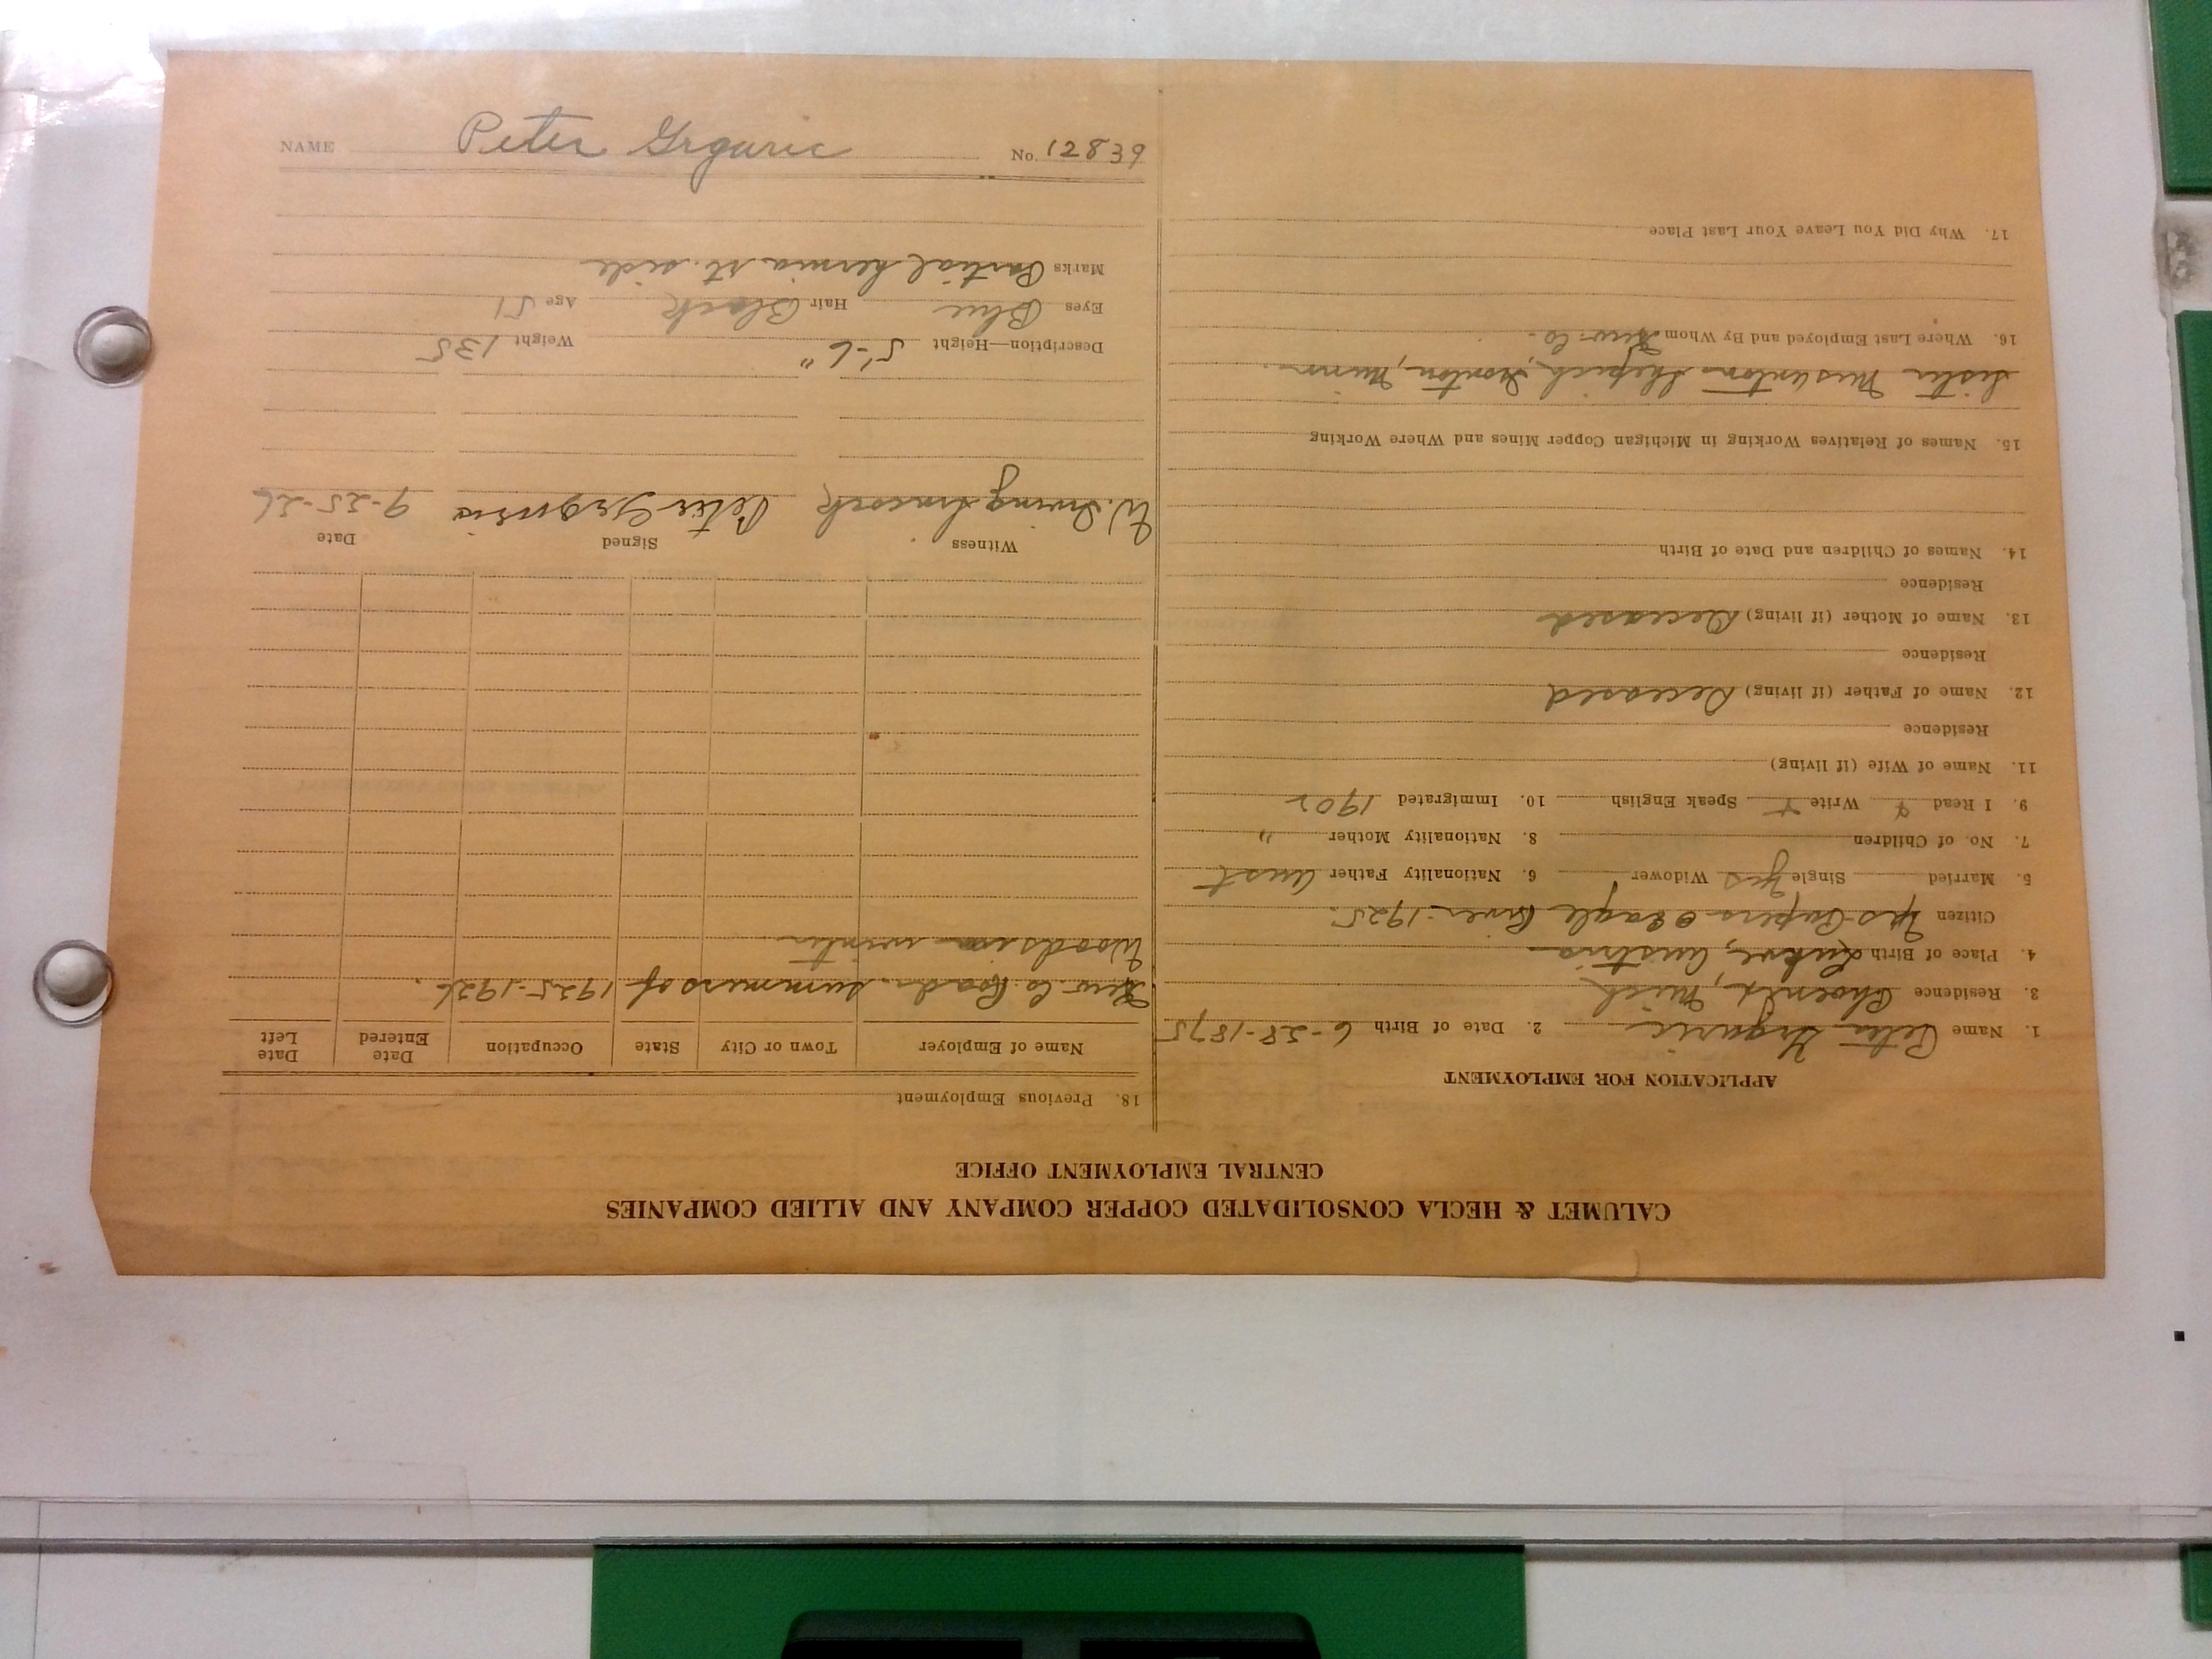 NAME Peter Grguric No. 12839
CALUMET & HECLA CONSOLIDATED COPPER COMPANY AND ALLIED COMPANIES
CENTRAL EMPLOYMENT OFFICE
APPLICATION FOR EMPLOYMENT
1. Name Peter Grguric 2. Date of Birth 6-28-1875
3. Residence Phoenix, Mich
4. Place of Birth Austria
Citizen Yes Papers Eagle River 1925.
5. Married Single Yes Widower 6. Nationality Father Aust
7. No. of Children 8. Nationality Mother "
9. I Read Write Speak English 10. Immigrated 1902
11. Name of Wife (if living)
Residence
12. Name of Father (if living) Deceased
Residence
13. Name of Mother (if living) Deceased
Residence
14. Names of Children and Date of Birth
15. Names of Relatives Working in Michigan Copper Mines and Where Working
Sister Mrs Anton Ironton, Minn.
16. Where Last Employed and By Whom Kew. Co.
17. Why Did You Leave Your Last Place
18. Previous Employment
Name of Employer Town or City State Occupation Date Entered Date Left
Kew. Co. Road. summers of 1925-1926.
Woods in winter
Witness Signed Date
W. Irving Peter Grguric 9-25-26
Description—Height 5'-6" Weight 135
Eyes Blue Hair Black Age 51
Marks Partial hernia rt. side